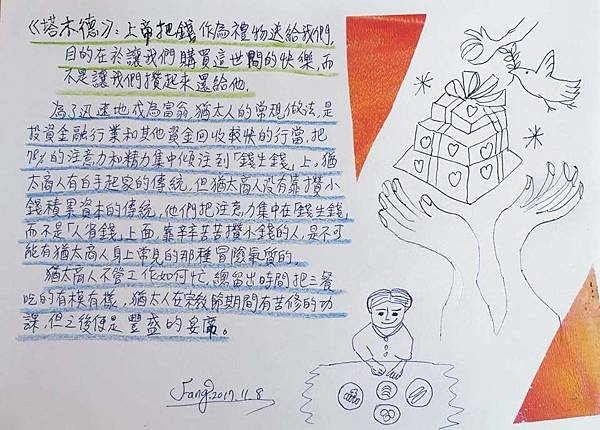 《塔木德》：上帝把錢作為禮物送給我們，
目的在於讓我們購買這世間的快樂，而
不是讓我們攢起來還給他。
為了迅速地成為富翁，猶太人的常規做法，是
投資金融行業和其他資金回收較快的行當，把
78%的注意力和精力集中傾注到「錢生錢」上。猶
太商人有白手起家的傳統，但猶太商人沒有靠攢小
錢積累資本的傳統，他們把注意力集中在「錢生錢」
而不是「人省錢」上面，靠辛辛苦苦攢小錢的人，是不可
能有猶太商人身上常見的那種冒險氣質的。
猶太商人不管工作如何忙，總留出時間把三餐
吃的有模有樣，猶太人在宗教節期間有苦修的功
課，但之後便是豐盛的宴席。
Fang.2017.11.8